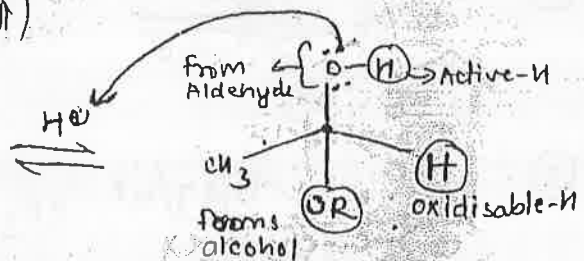 ⇑)
from
Aldehyde
:O:
H → Active-H
H⊕
CH3
H
oxidisable-H
OR
forms
alcohol